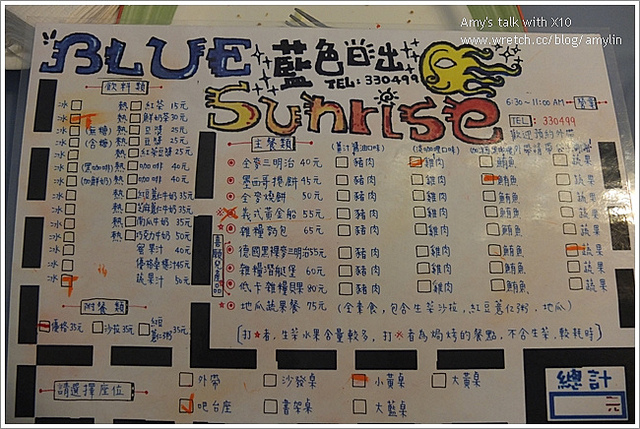 Amy's talk with X10
www.wretch.cc/blog/amylin
BLUE 藍色日出
TEL: 330499
Sunrise
6:30~11:00 AM 營業
TEL: 330499
飲料類
冰 熱 紅茶 15元
冰 熱 鮮奶茶30元
冰 (無糖) 熱 豆漿 25元
冰 (含糖) 熱 豆漿 25元
冰 熱 紅茶豆漿 25元
冰 (黑咖啡) 熱 咖啡 40元
冰 (加鮮奶) 熱 咖啡 40元
冰 熱 35元
冰 熱 35元
冰 熱 南瓜牛奶 35元
冰 熱 巧克力牛奶 50元
冰 蜜果汁 40元
冰 優格桑椹汁45元
冰 蔬果汁 50元
附餐類
優格35元 沙拉35元 紅豆薏仁粥35元
主餐類
全麥三明治 40元 豬肉 雞肉 鮪魚 蔬果
墨西哥捲餅 45元 豬肉 雞肉 鮪魚 蔬果
全麥燒餅 50元 豬肉 雞肉 鮪魚 蔬果
義式黃金船 55元 豬肉 雞肉 鮪魚 蔬果
雜糧麵包 65元 豬肉 雞肉 鮪魚 蔬果
德國黑裸麥三明治55元 豬肉 雞肉 鮪魚 蔬果
雜糧潛艇堡 60元 豬肉 雞肉 鮪魚 蔬果
低卡雜糧貝果 80元 豬肉 雞肉 鮪魚 蔬果
地瓜蔬果餐 75元 (全素食,包含生菜沙拉,紅豆薏仁粥、地瓜)
(打★者,生菜水果含量較多,打※者為焗烤的餐點,不含生菜,較耗時)
請選擇座位
外帶 沙發桌 小黃桌 大黃桌
吧台座 書架桌 大藍桌
總計
元